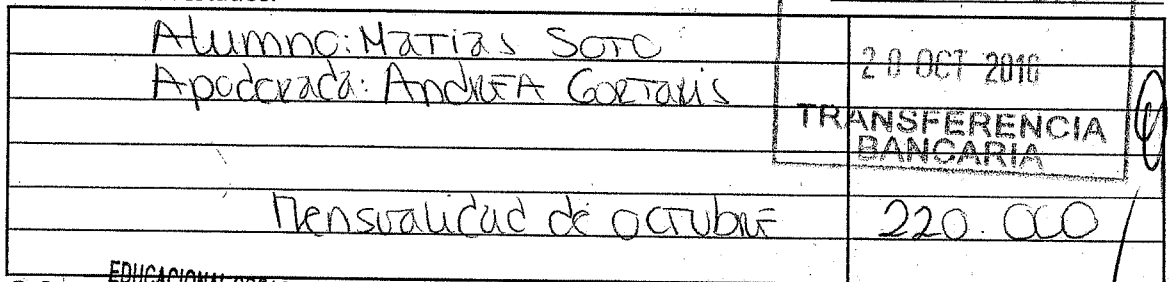 Alumno: Matias Soto
Apoderada: Andrea Gortaris
20 OCT 2016
TRANSFERENCIA
BANCARIA
Mensualidad de octubre 220.000
EDUCACIONAL